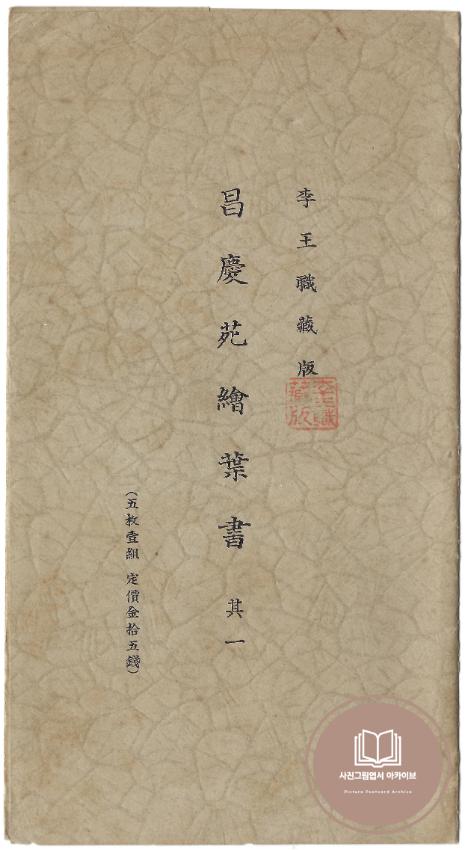 李王職藏版
李王職
藏版
昌慶苑繪葉書 其一
（五枚壹組 定價金拾五錢）
사진그림엽서 아카이브
Picture Postcard Archive